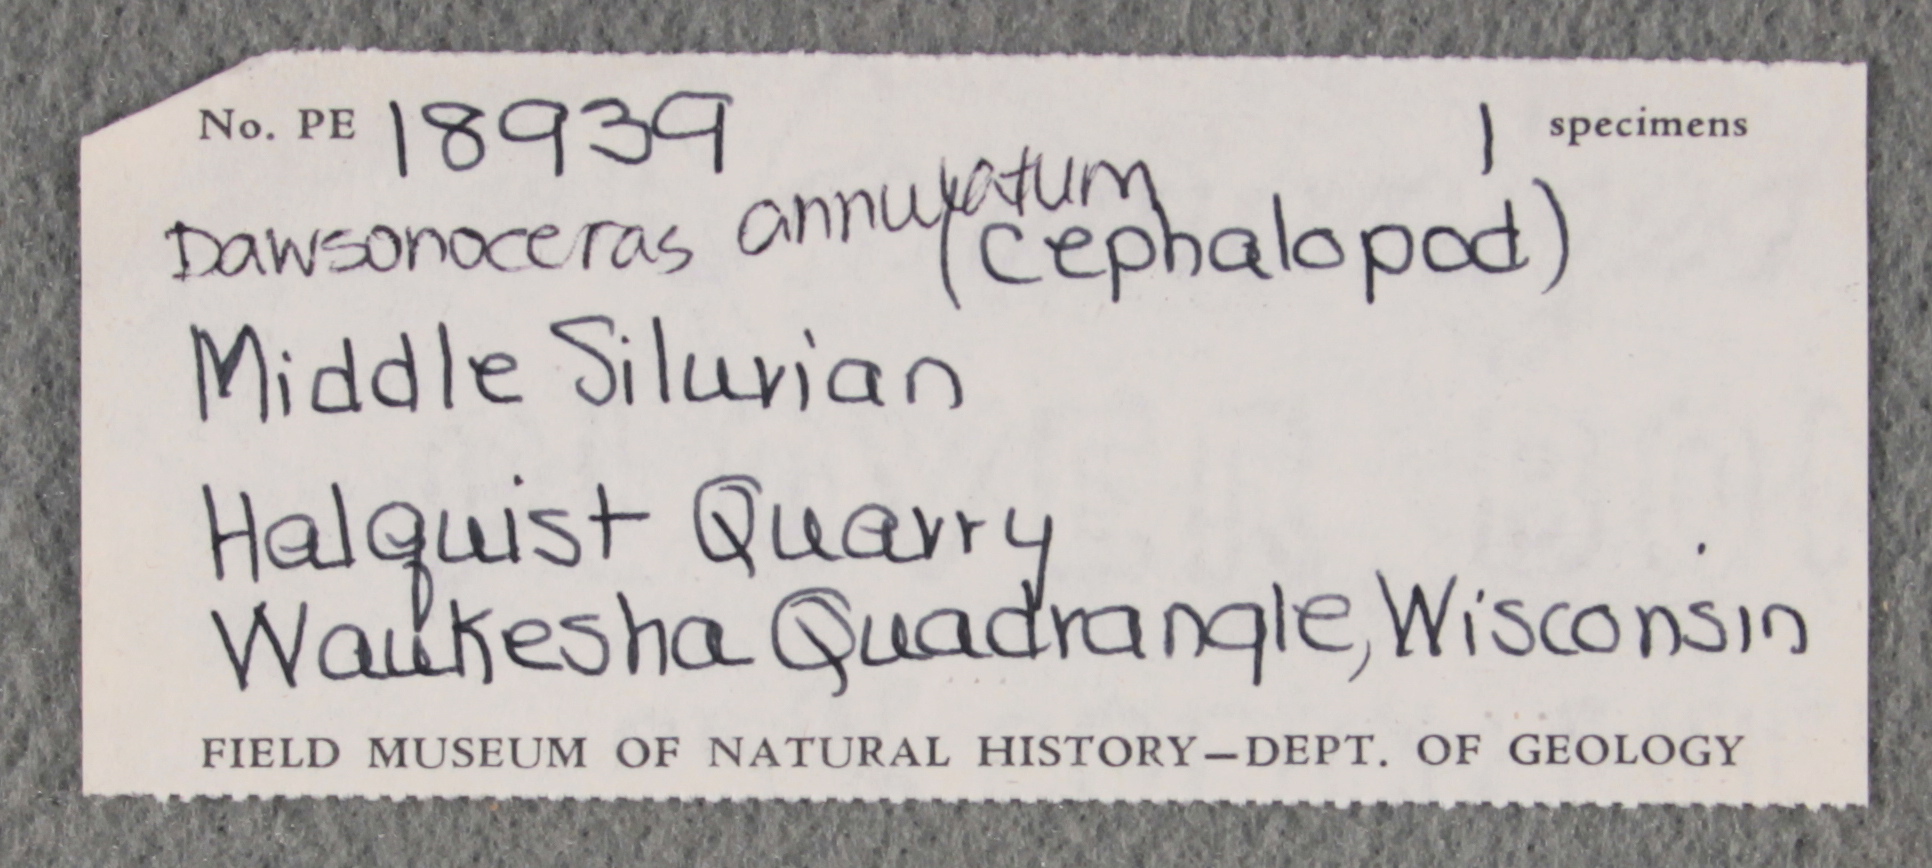 No. PE 18939 1 specimens
Dawsonoceras annulatum (cephalopod)
Middle Silurian
Halquist Quarry
Waukesha Quadrangle, Wisconsin
FIELD MUSEUM OF NATURAL HISTORY—DEPT. OF GEOLOGY